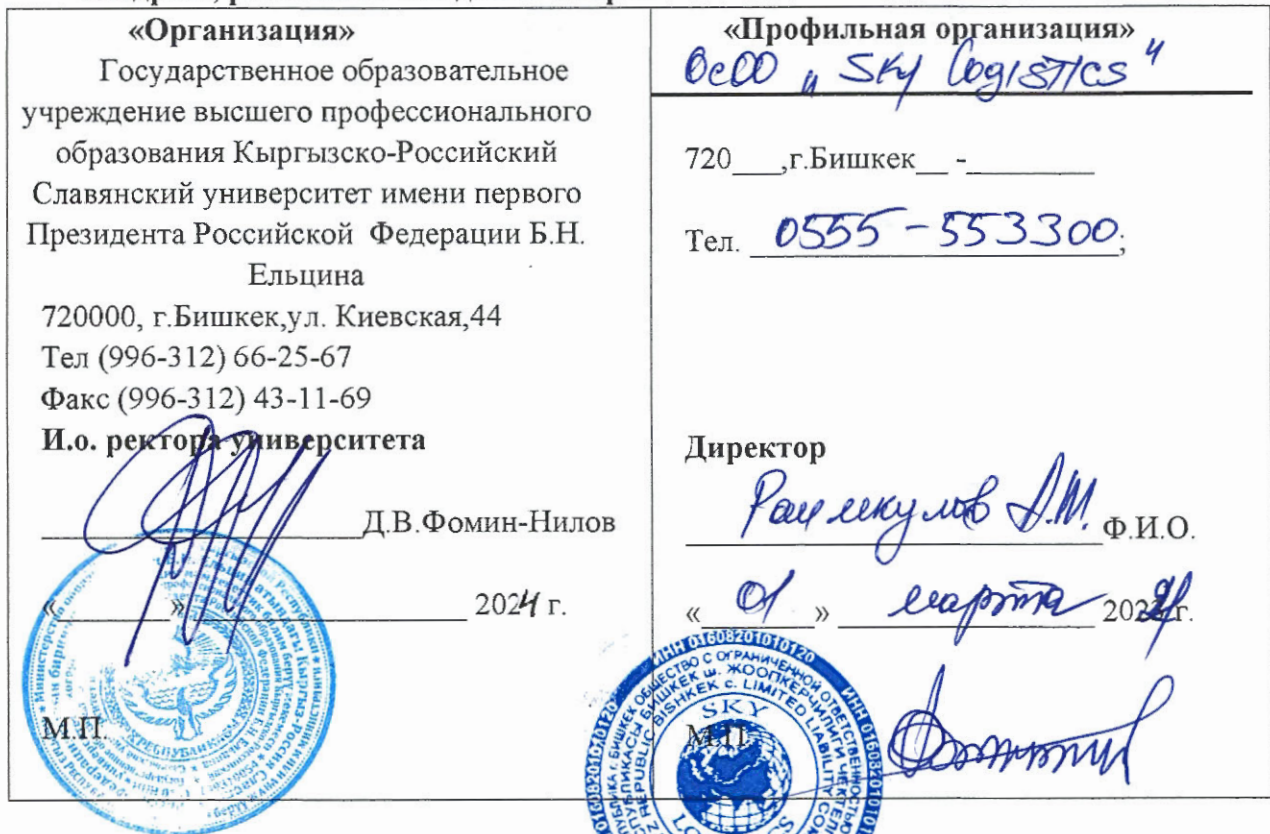 «Организация»
Государственное образовательное
учреждение высшего профессионального
образования Кыргызско-Российский
Славянский университет имени первого
Президента Российской Федерации Б.Н.
Ельцина
720000, г.Бишкек,ул. Киевская,44
Тел (996-312) 66-25-67
Факс (996-312) 43-11-69
И.о. ректора университета
Д.В.Фомин-Нилов
«______»____________ 2024 г.
М.П.
«Профильная организация»
ОсОО "Sky Logistics"
720___,г.Бишкек__ -________
Тел. 0555-553300;
Директор
Раимкулов Ф.И.О.
« 01 » марта 202 г.
М.П.
ИНН 01608201010120
SKY